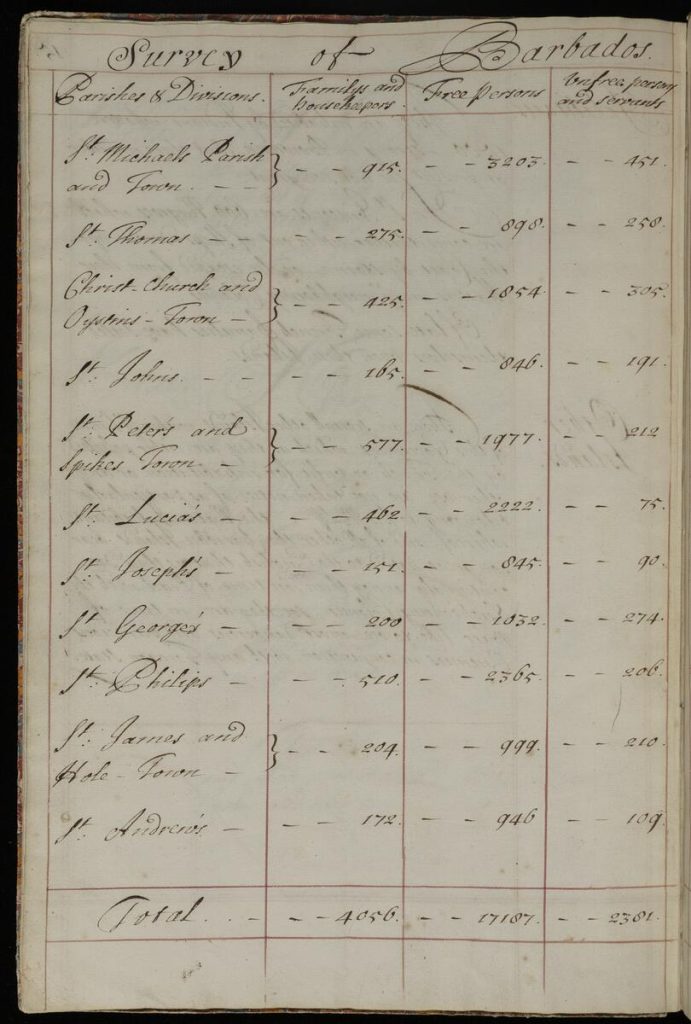 Survey of Barbados.
Parishes & Divisions. Familys and housekeepers. Free Persons Unfree persons and servants
St. Michaels Parish
and Town. - - } - - 915. - - 3203 - - 451.
St. Thomas - - - 275. - - 898. - - 258.
Christ-Church and
Oystins-Town - } - - 425. - - 1854 - - 305.
St. Johns. - - - - - 165. - - 846. - - 191.
St. Peter's and
Spikes Town - } - - 577. - - 1977. - - 212
St. Lucia's - - - - 462 - - 2222. - - 75.
St. Joseph's - - - - 151. - - 845. - - 90.
St. George's - - - - 200 - - 1032. - - 274.
St. Philips - - - - 510. - - 2365. - - 206.
St. James and
Hole-Town - } - - 204. - - 999. - - 210.
St. Andrew's. - - - - 172. - - 946 - - 109.
Total. . . - - - 4056. - - 17187. - - 2381.